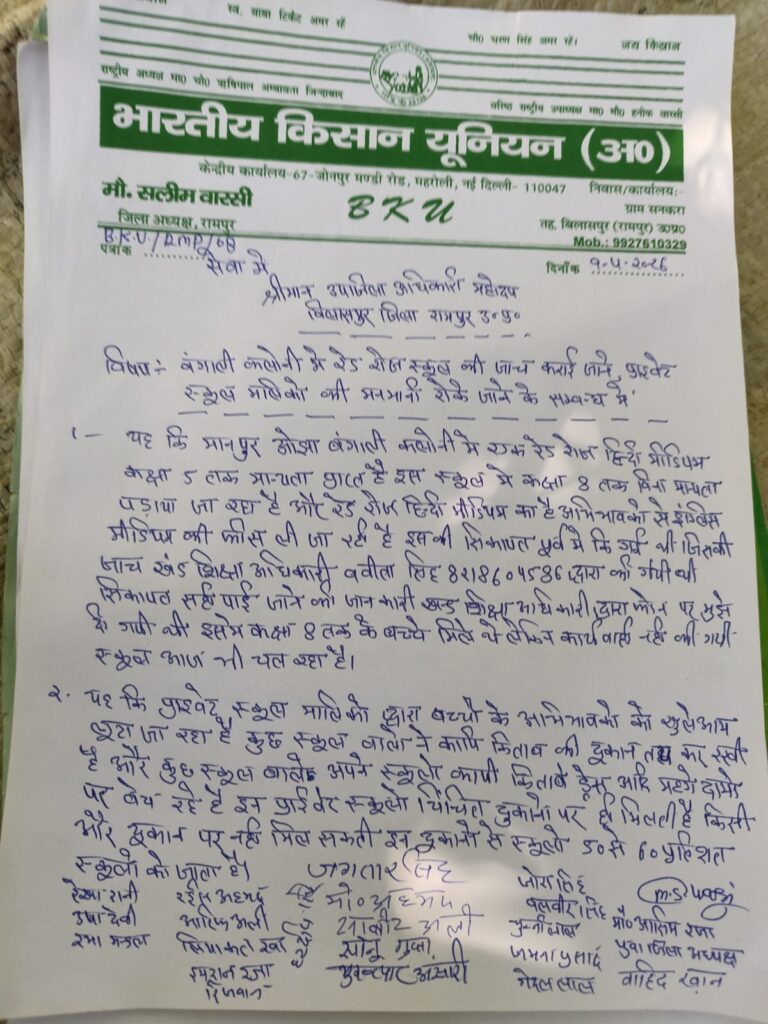 स्व. बाबा टिकैत अमर रहें
चौ0 चरण सिंह अमर रहें।
जय किसान
राष्ट्रीय अध्यक्ष मा0 चौ0 ऋषिपाल अम्बावता जिन्दाबाद
वरिष्ठ राष्ट्रीय उपाध्यक्ष मा0 मौ0 हनीफ वारसी
भारतीय किसान यूनियन (अ0)
केन्द्रीय कार्यालय-67-जोनपुर मण्डी रोड, महरोली, नई दिल्ली- 110047
निवास/कार्यालय:-
मौ. सलीम वारसी
BKU
ग्राम सनकरा
जिला अध्यक्ष, रामपुर
तह. बिलासपुर (रामपुर) उ0प्र0
Mob.: 9927610329
पत्रांक B.K.U/RMP/68
दिनाँक 9-4-2026
सेवा में
श्रीमान उपजिला अधिकारी महोदय
बिलासपुर जिला रामपुर उ०प्र०
विषय:- बंगाली कलोनी मे रेड रोज स्कूल की जाच कराई जाने, प्राइवेट
स्कूल मालिको की मनमानी रोके जाने के सम्बन्ध मे
१- यह कि मानपुर ओझा बंगाली कलोनी मे एक रेड रोज हिन्दी मीडियम
कक्षा 5 तक मान्यता प्राप्त है इस स्कूल मे कक्षा 8 तक बिना मान्यता
पढ़ाया जा रहा है और रेड रोज हिन्दी मीडियम का है अभिभावको से इंग्लिस
मीडियम की फीस ली जा रही है इसकी सिकायत पूर्व मे कि गई थी जिसकी
जाच खंड शिक्षा अधिकारी ववीता सिंह 8218604586 द्वारा की गयी थी
सिकायत सही पाई जाने की जानकारी खन्ड शिक्षा अधिकारी द्वारा फोन पर मुझे
दी गयी थी इसमे कक्षा 8 तक के बच्चे मिले थे लेकिन कार्यवाही नही की गयी
स्कूल आज भी चल रहा है।
२- यह कि प्राइवेट स्कूल मालिको द्वारा बच्चो के अभिभावको को खुलेआम
लूटा जा रहा है कुछ स्कूल वालो ने कापि किताब की दुकान तय कर रखी
है और कुछ स्कूल वाले अपने स्कूलो कापी किताबे ड्रेस आदि महंगे दामो
पर बेच रहे है इन प्राईवेट स्कूलो चिंचित दुकानो पर ही मिलती है किसी
और दुकान पर नही मिल सकती इन दुकानो से स्कूलो 50 से 60 प्रतिशत
स्कूलो को जाता है।
जगतार सिंह
जोरा सिंह
रेखा रानी
रईस अहमद
मो० अहमद
बलवीर सिंह
उषा देवी
आरिफ अली
साबीर अली
मुन्नीलाल
मौ० आसिम रजा
रमा मन्डल
लियाकत खां
सोनू गुप्ता
जमना प्रसाद
युवा जिला अध्यक्ष
इमरान रजा
अंसारी
गेंदन लाल
वाहिद खान
रिजवान